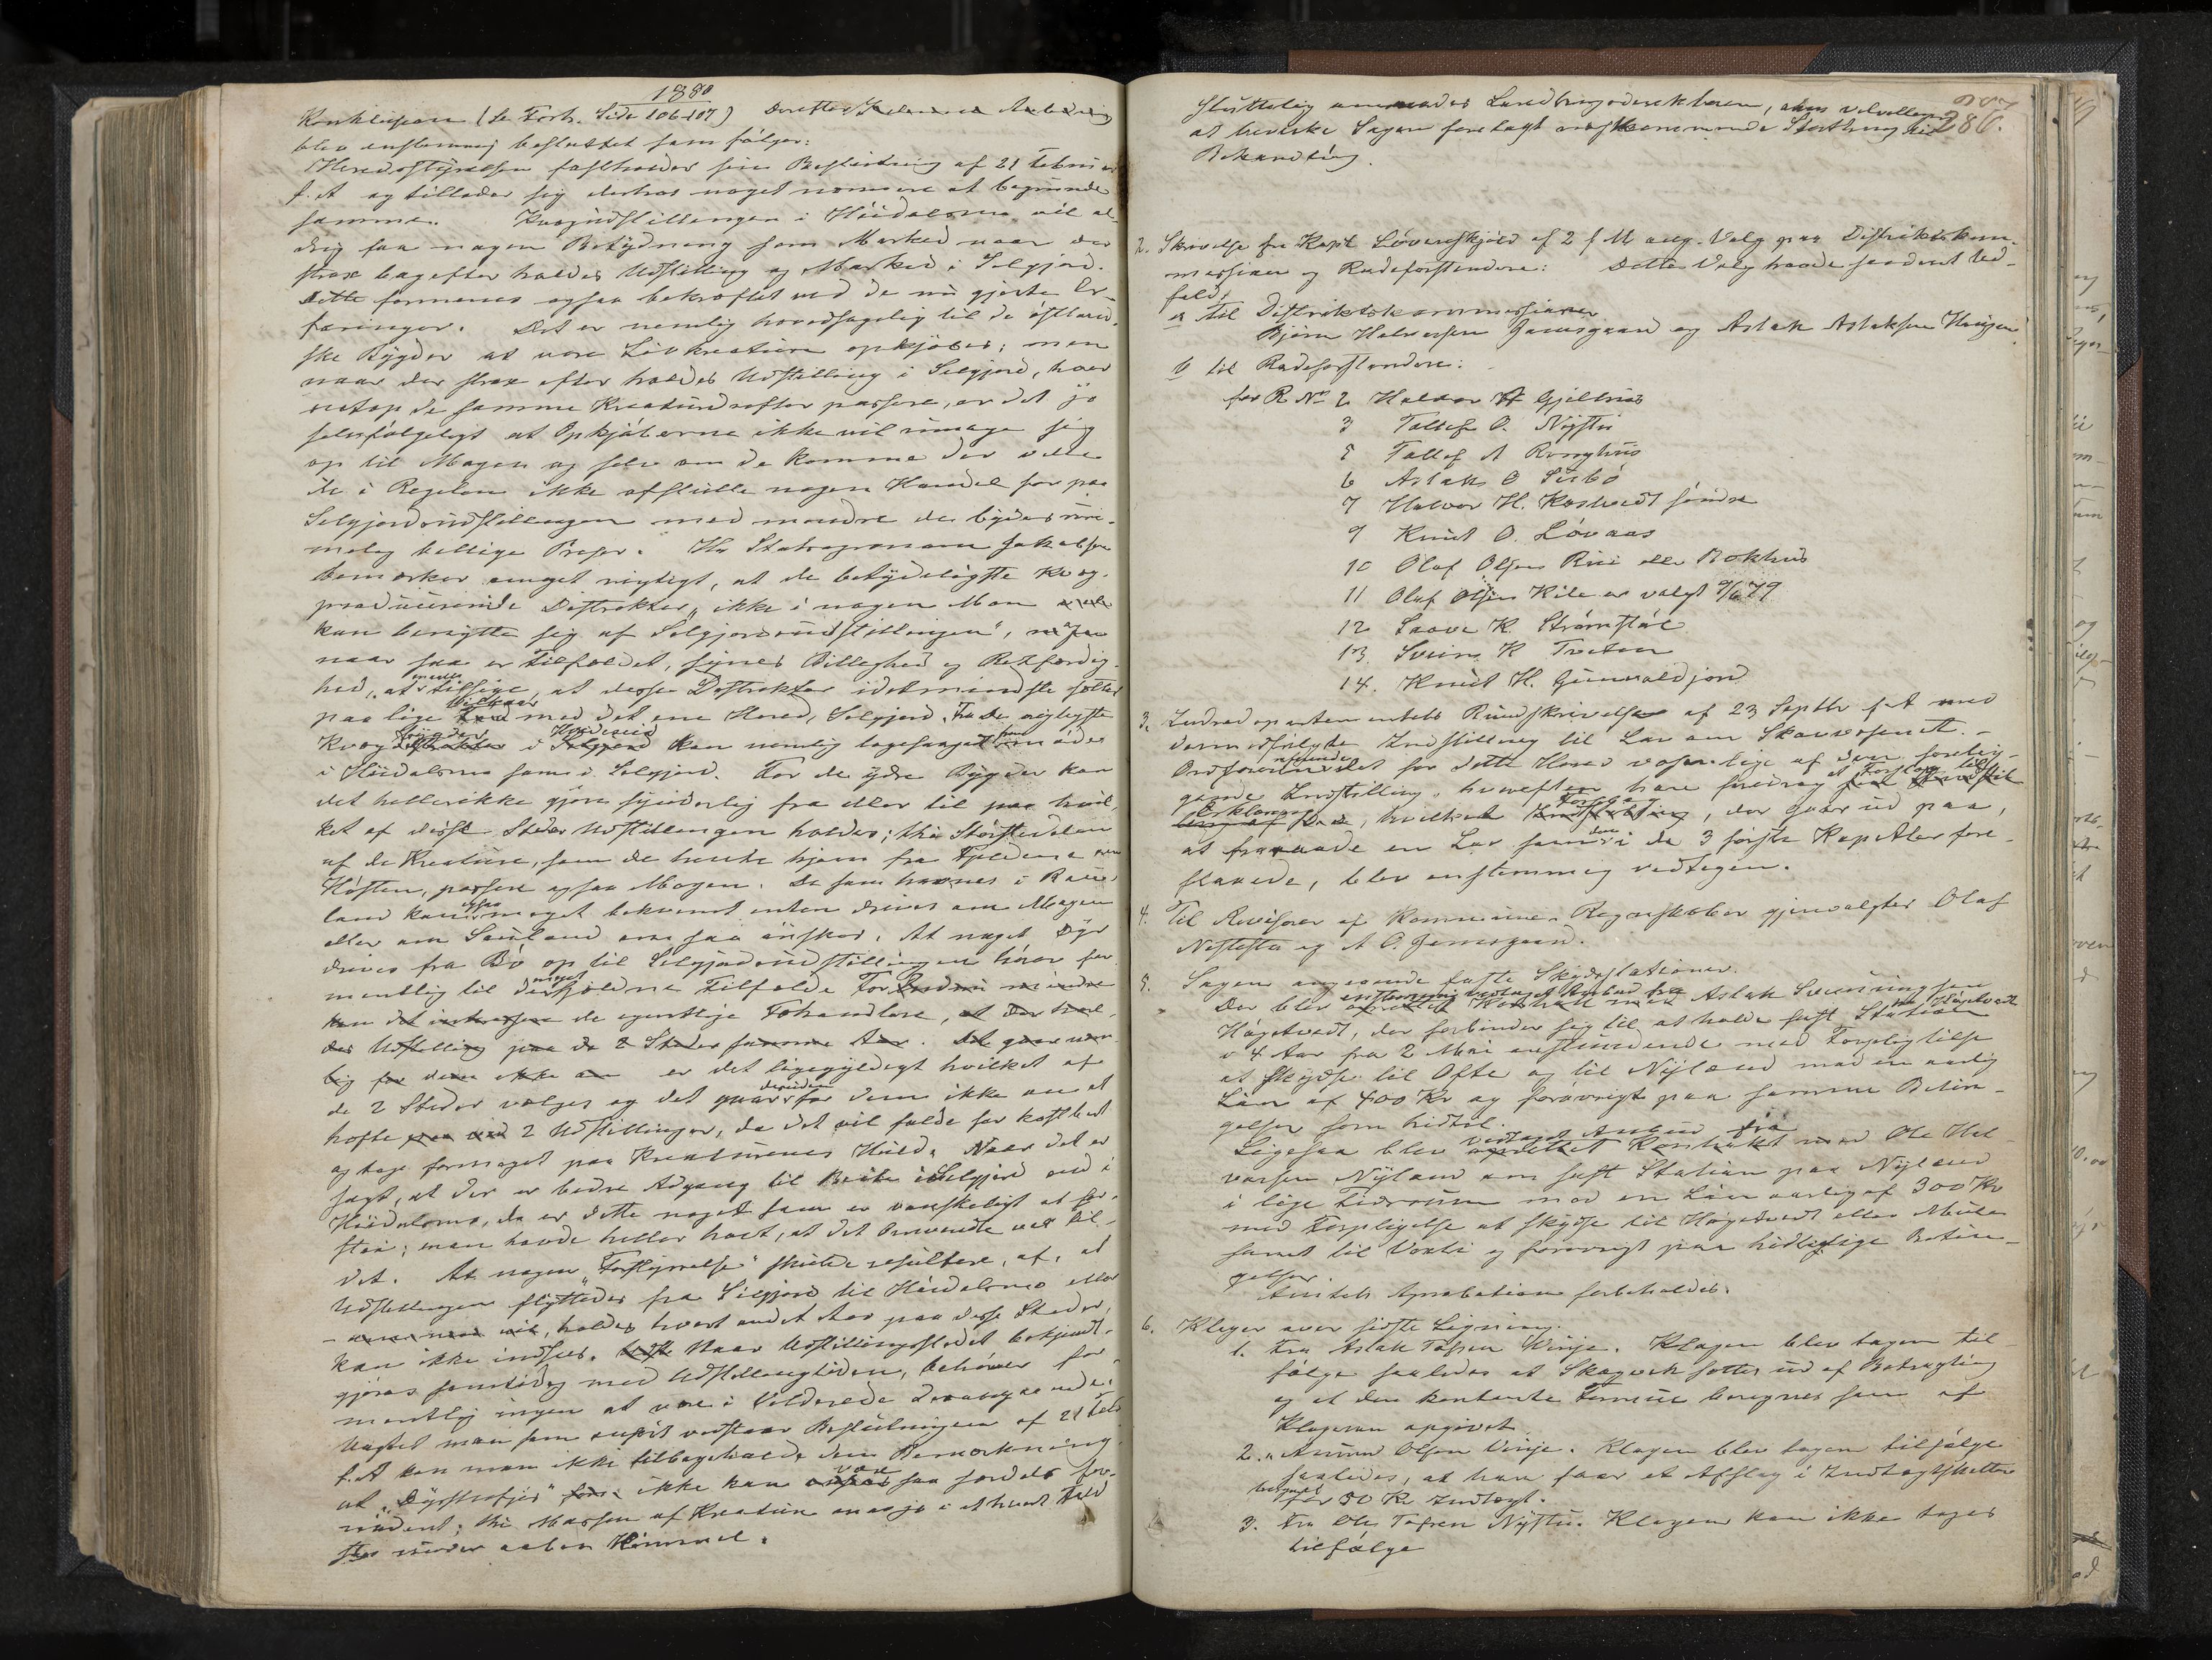 1880
Konklusion (Se Forh. Side 106-107) Derefter
blev enstemmig besluttet som følger:
Herredsstyrelsen fastholder sin Beslutning af 21 Februar
f. A og tillader sig derhos noget nærmere at begrunde
samme. Kvægudstillingen i Hiidalsmo vil al-
drig faa nogen Betydning som Marked naar der
strax bagefter holdes Udstilling og Marked i Selgjord.
Dette formenes ogsaa bekræftet ved de nu gjorte Er-
faringer. Det er nemlig hovedsagelig til de østland-
ske Bygder at vore Livkreature opkjøbes; men
naar der strax efter holdes Udstilling i Selgjord, hvor
netop de samme Kreaturdrifter passere, er det jo
selvfølgeligt at Opkjøberne ikke vil umage sig
op til Mogen og selv om de komme der ville
de i Regelen ikke afslutte nogen Handel før paa
Selgjordsudstillingen med mindre der bydes uri-
melig billige Priser. Hr Statsagronom Jakobsen
bemærker meget rigtigt, at de betydeligste Kvæg-
producerende Distrikter „ikke i nogen Mon
kan benytte sig af Selgjordsudstillingen", men
naar saa er Tilfældet, synes Billighed og Retfærdig-
hed at tilsige, at disse Distrikter idetmindste sættes
paa lige Vilkaar med det ene Herred, Selgjord. Fra de vigtigste
Kvægbygder i Hvideseid kan nemlig ligesaagodt møde
i Hiidalsmo som i Selgjord. For de ydre Bygder kan
det heller ikke gjøre synderlig fra eller til paa hvil-
ket af disse Steder Udstillingen holdes; thi Størstedelen
af de Kreature, som de hente hjem fra Fjeldene om
Høsten, passere ogsaa Mogen. De som havnes i Rau-
land kan ogsaa meget bekvemt enten drives om Mogen
eller om Sauland om saa ønskes. At noget Dyr
drives fra Bø op til Selgjordsudstillingen hører for-
mentlig til de meget sjeldne Tilfælde For
de egentlige Fæhandlere,
Udstilling paa de 2 Steder samme Aar.
er det ligegyldigt hvilket af
de 2 Steder vælges og det gaar desuden for dem ikke an at
hefte 2 Udstillinger, da det vil falde for kostbart
og tage formeget paa Kreaturenes Huld. Naar det er
sagt, at der er bedre Adgang til Beite i Selgjord end i
Hiidalsmo, da er dette noget som er vanskeligt at for-
staa; man havde heller troet, at det Omvendte var Til-
det. At nogen „Forstyrrelse" skulde resultere, af, at
Udstillingen flyttedes fra Selgjord til Hiidalsmo eller
holdes hvert andet Aar paa disse Steder,
kan ikke indsees. Naar Udstillingsstedet bekjendt-
gjøres samtidig med Udstillingstiden, behøver for-
mentlig ingen at være i Vilderede desangaaende.
Uagtet man som anført vedstaar Beslutningen af 21 Febr
f. A kan man ikke tilbageholde den Bemærkning
at „Dyrskufjøs" ikke kan være saa særdeles for-
nødent; thi Massen af Kreature maa jo i ethvert Fald
staa under aaben Himmel.
286.
Sluttelig anmodes Landbrugsdirektøren, om velvilligen
at bevirke Sagen foretagt næstkommende Storthing til
Behandling.
2. Skrivelse fra Kapt Løvenskjold af 2 f M ang. Valg paa Distriktskom-
missærer og Rodeforstandere: Dette Valg havde saadant Ud-
fald,
a til Distriktskommissærer
Bjørn Halvorsen Jamsgaard og Aslak Aslaksen Haugen
b til Rodeforstandere:
for R No 2 Halvor A Gjelhus
3 Tallef O. Nystu
5 Tallef A Ronghus
6 Aslak O Surbø
7 Halvor H. Kostvedt søndre
9 Knut O. Løvaas
10 Olaf Olsen Rui eller Bokhus
11 Olaf Olsen Kile er valgt 9/6 79
12 Saave K. Strømstøl
13 Svein K Tveten
14. Knut H. Gunvaldjord
3. Indredepartementets Rundskrivelse af 23 Septbr f A med
dermedfølgte Indstilling til Lov om Skovvæsenet. —
Ordføreren refererede det for dette Herred væsentlige af den forelig-
gende Indstilling, hvorefter hans foredrag et Forslag til
Erklæring, hvilket Forslag, der gaar ud paa,
at fraraade en Lov som den i de 3 første Kapitler fore-
slaaede, blev enstemmig vedtagen.
4. Til Revisorer af Kommune-Regnskaber gjenvalgtes Olaf
Nestestu og A O. Jamsgaard.
5. Sagen angaaende faste Skydsstationer.
Der blev enstemmig vedtaget Anbud fra Aslak Sveinungsen
Høgetvedt, der forbinder sig til at holde fast Station paa Høgetvedt
i 4 Aar fra 2 Mai anstundende med Forpligtelse
at skydse til Ofte og til Nyland mod en aarlig
Løn af 400 Kr og forøvrigt paa samme Betin-
gelser som hidtil.
Ligesaa blev vedtaget Anbud fra Ole Hal-
vorsen Nyland om fast Station paa Nyland
i lige Tidsrum mod en Løn aarlig af 300 Kr
med Forpligtelse at skydse til Høgetvedt eller Mule
samt til Vaali og forøvrigt paa hidtidige Betin-
gelser.
Amtets Aprobation forbeholdes.
6. Klager over sidste Ligning.
1. Fra Aslak Tofsen Vinje. Klagen blev tagen til
følge saaledes at Skogvek sættes ud af Betragtning
og at den kontante Formue beregnes som af
Klageren opgivet
2. „ Anund Olsen Vinje. Klagen blev tagen tilfølge
saaledes, at han faar et Afslag i Indtægtskatten
beregnet for 50 Kr Indtægt.
3. Fra Ole Tofsen Nystu. Klagen kan ikke tages
tilfølge